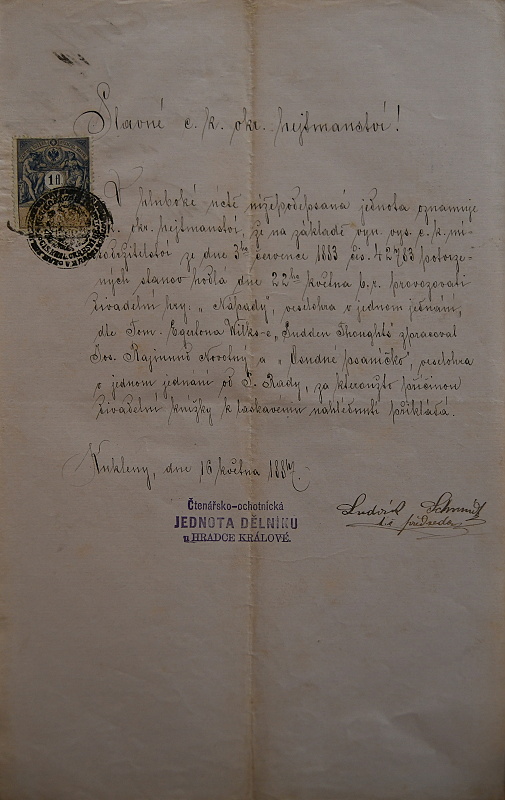 Slavné c. k. okr. hejtmanství!
10
V hluboké úctě nížepodepsaná jednota oznamuje
c. k. okr. hejtmanství, že na základě vyn. vys. c. k. mí-
stodržitelství ze dne 3ho července 1883 čís. 42783 potvrze-
ných stanov hodlá dne 22ho května t. r. provozovati
divadelní hry: „Nápady", veselohra v jednom jednání,
dle Tom. Egertona Wilks-e „Sudden Thoughts" zpracoval
Jos. Rajmund Novotný a „Osudné psaníčko", veselohra
v jednom jednání od Rady, za kteroužto příčinou
divadelní knížky k laskavému nahlédnutí přikládá.
Kukleny, dne 16 května 1887.
Čtenářsko-ochotnická
JEDNOTA DĚLNÍKU
u HRADCE KRÁLOVÉ.
Ludvík Schmidt
předseda